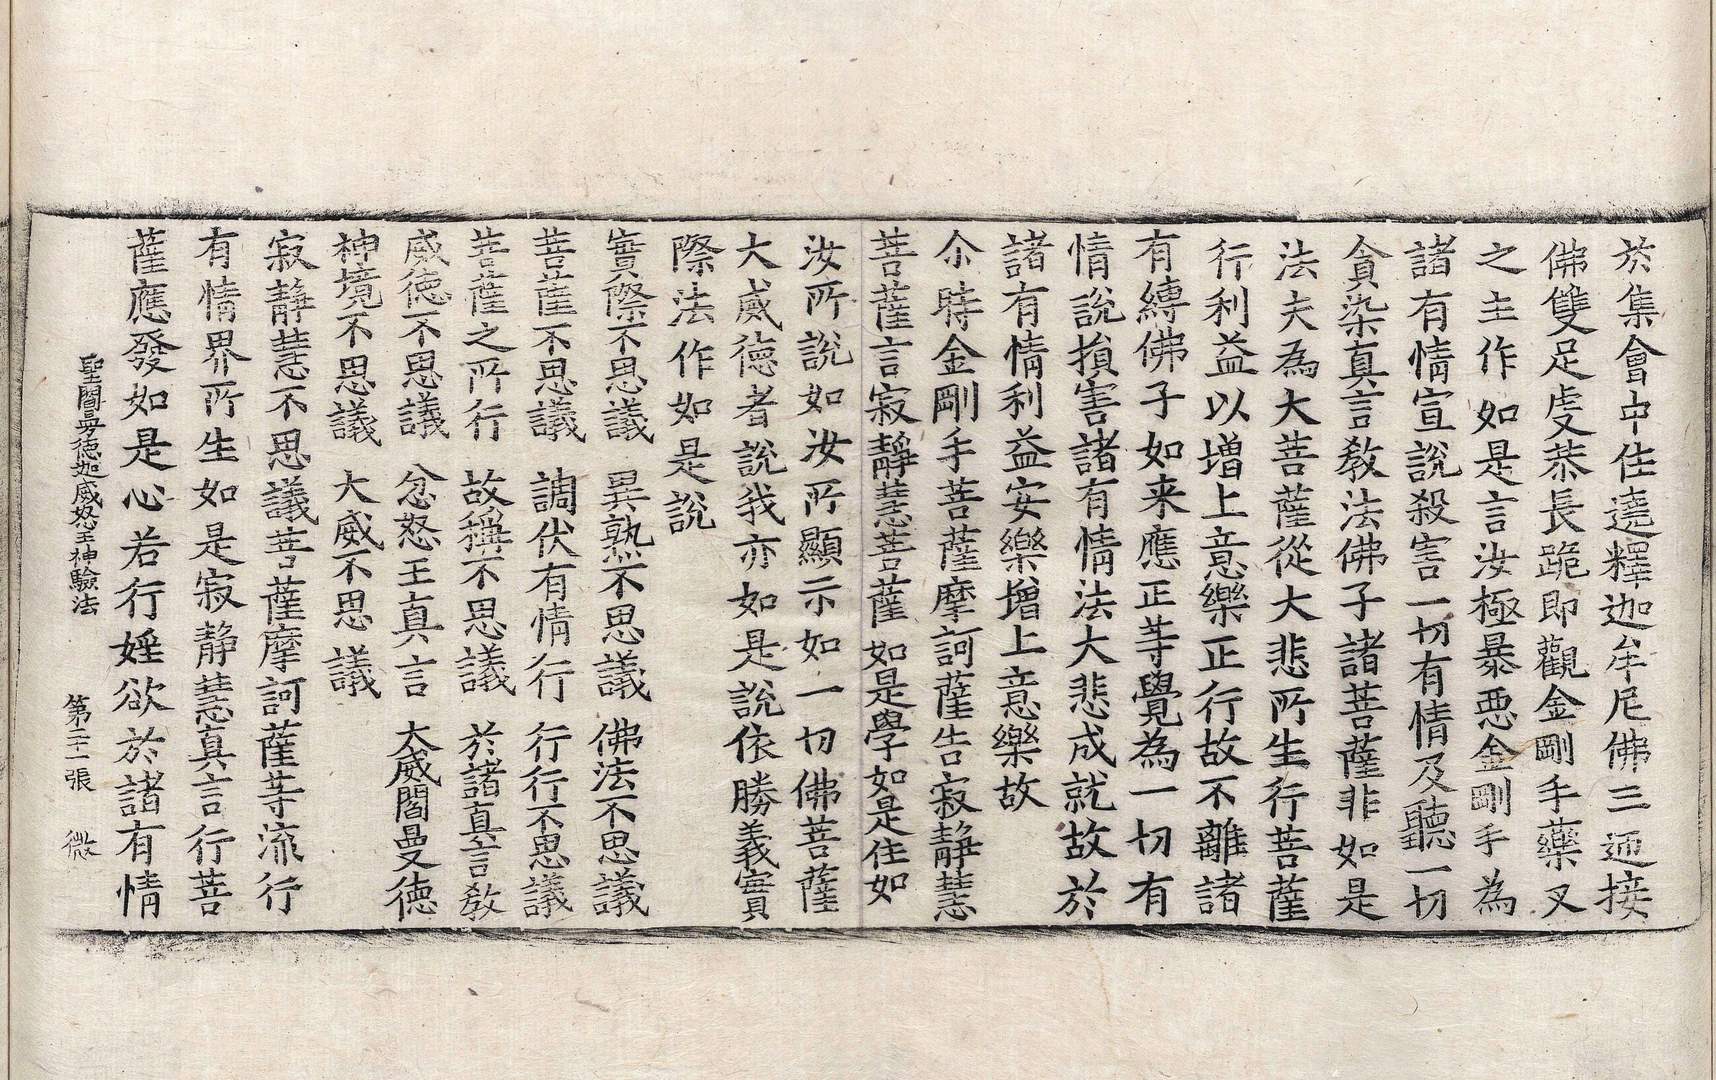 於集會中住遶釋迦牟尼佛三迊接
佛雙足虔恭長跪即觀金剛手藥叉
之主作如是言汝極暴悪金剛手為
諸有情宣說殺害一切有情及聽一切
貪染真言教法佛子諸菩薩非如是
法夫為大菩薩從大悲所生行菩薩
行利益以增上意樂正行故不離諸
有縛佛子如来應正等覺為一切有
情說損害諸有情法大悲成就故於
諸有情利益安樂增上意樂故
尒時金剛手菩薩摩訶薩告寂靜慧
菩薩言寂靜慧菩薩如是學如是住如
汝所說如汝所顯示如一切佛菩薩
大威德者說我亦如是說依勝義實
際法作如是說
實際不思議 異熟不思議 佛法不思議
菩薩不思議 調伏有情行 行行不思議
菩薩之所行 故稱不思議 於諸真言教
威德不思議 忿怒王真言 大威閻曼德
神境不思議 大威不思議
寂靜慧不思議菩薩摩訶薩等流行
有情界所生如是寂靜慧真言行菩
薩應發如是心若行婬欲於諸有情
聖閻曼德迦威怒王神驗法 第二十一張 微